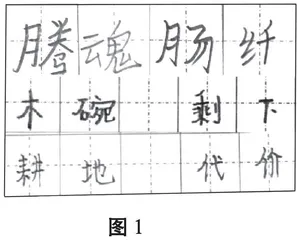 腾魂肠纤
木碗 剩下
耕地 代价
图1